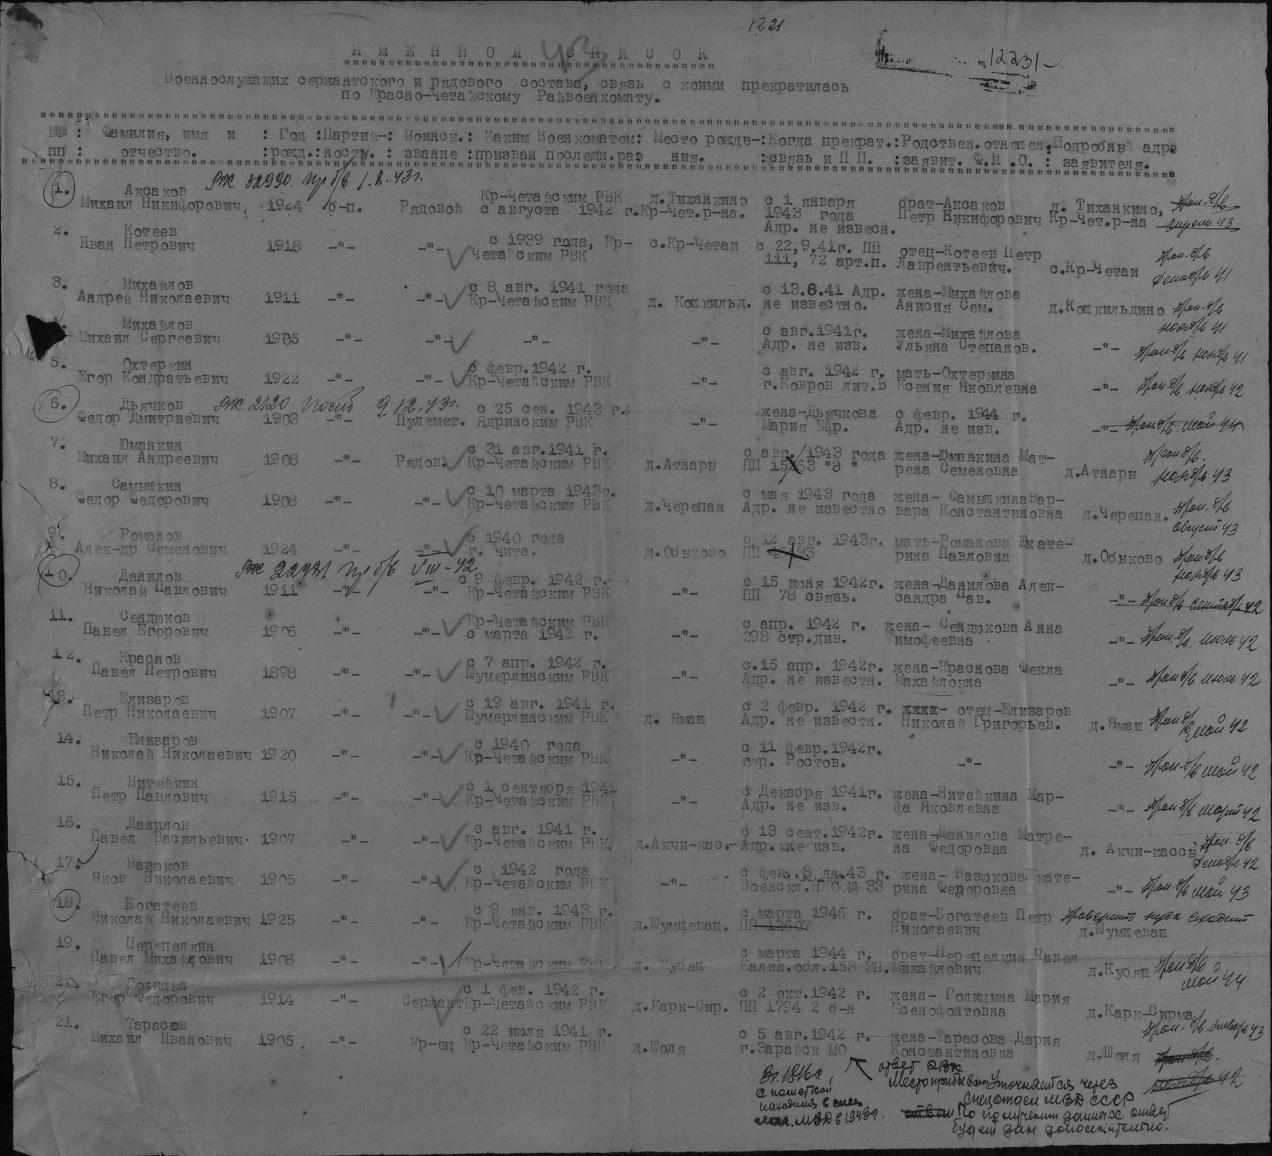 1221
И М Е Н Н О Й С П И С О К
43
12231-
Военнослужащих сержантского и рядового состава, связь с коими прекратилась
по Красно-Четайскому Райвоенкомату.
№№ : Фамилия, имя и : Год :Партий-: Воинск.: Каким Военкоматом: Место рожде-:Когда прекрат.:Родствен.отношен.Подробный адре
пп : отчество. :рожд.:ность. : звание :призван последн.раз ния. :связь и П П. :заявит. Ф.И.О. : заявителя.
1. Аксаков 32990 пр б/в 1.8.43г.
Михаил Никифорович, 1924 б-п. Рядовой Кр-Четайским РВК с августа 1942 г. д.Тиханкино Кр-Чет.р-на. с 1 января 1943 года Адр. не извесн. брат-Аксаков Петр Никифорович д. Тиханкино, Кр-Чет.р-на проп. б/в апрель 43
2. Котеев
Иван Петрович 1918 -"- -"- с 1939 года, Кр-Четайским РВК с.Кр-Четаи с 22,9.41г. ПП 111, 72 арт.п. отец-Котеев Петр Лаврентьевич. с.Кр-Четаи проп. б/в декабрь 41
3. Михайлов
Андрей Николаевич 1911 -"- -"- с 8 авг. 1941 года Кр-Четайским РВК д. Кошкильд. с 13.8.41 Адр. не известно. жена-Михайлова Анисия Сем. д.Кошкильдино проп. б/в ноябрь 41
4. Михайлов
Михаил Сергеевич 1905 -"- -"- -"- -"- с авг.1941г. Адр. не изв. жена-Михайлова Ульяна Степанов. -"- проп б/в ноябрь 41
5. Охтеркин
Егор Кондратьевич 1922 -"- -"- с февр.1942 г. Кр-Четайским РВК -"- с авг. 1942 г. г.Ковров лит.Б мать-Охтеркина Ксения Яковлевна -"- проп б/в ноябрь 42
6. Дьячков 2120 погиб 9.12.43г.
Федор Дмитриевич 1903 -"- Пулемет. с 25 сен. 1943 г. Ядринским РВК -"- жена-Дьячкова Мария Ефр. с февр. 1944 г. Адр. не изв. -"- проп б/в май 44
7. Юманкин
Михаил Андреевич 1908 -"- Рядов. с 31 авг.1941 г. Кр-Четайским РВК д.Атнары с авг. 1943 года ПП 15763 "Э" жена-Юманкина Матрена Семеновна д.Атнары проп б/в. ноябрь 43
8. Самышкин
Федор Федорович 1908 -"- -"- с 10 марта 1943г. Кр-Четайским РВК д.Черепан с мая 1943 года Адр. не известно жена- Самышкина Варвара Константиновна д.Черепан. проп. б/в август 43
9. Романов
Алек-др Семенович 1924 -"- -"- с 1940 года г. Чита. д.Обыково с 12 авг. 1943г. ПП мать-Романова Екатерина Павловна д.Обыково проп б/в ноябрь 43
10. Данилов 22431 пр б/в VIII-42
Николай Павлович 1911 -"- -"- с 9 февр. 1942 г. Кр-Четайским РВК -"- с 15 июня 1942г. ПП 78 связь. жена-Данилова Александра Пав. -"- проп б/в сентябрь 42
11. Сендюков
Павел Егорович 1906 -"- -"- Кр-Четайским РВК с марта 1942 г. -"- с апр. 1942 г. 298 стр.див. жена- Сендюкова Анна Тимофеевна -"- проп. б/в июль 42
12. Краснов
Павел Петрович 1898 -"- -"- с 7 апр. 1942 г. Шумерлинским РВК -"- с.15 апр. 1942г. Адр. не известн. жена-Краснова Фекла Михайловна -"- проп б/в июль 42
13. Елизаров
Петр Николаевич 1907 -"- с 19 авг. 1941 г. Шумерлинским РВК д. Ямаш с 2 февр. 1942 г. Адр. не известн. отец-Елизаров Николай Григорьев. д.Ямаш проп б/в май 42
14. Елизаров
Николай Николаевич 1920 -"- -"- с 1940 года Кр-Четайским РВК -"- с 11 февр.1942г. гор. Ростов. -"- -"- проп. б/в май 42
15. Нитейкин
Петр Павлович 1915 -"- -"- с 1 сентября 1941 Кр-Четайским РВК -"- с Декабря 1941г. Адр. не изв. жена-Нитейкина Марфа Яковлевна -"- проп б/в март 42
16. Данилов
Павел Васильевич 1907 -"- -"- с авг. 1941 г. Кр-Четайским РВК д.Акчи-кас.- с 13 сент.1942г. Адр. не изв. жена-Данилова Матрена Федоровна д. Акчи-кассы проп. б/в декабрь 42
17. Вазюков
Яков Николаевич 1905 -"- -"- с 1942 года Кр-Четайским РВК -"- с фев. 8 дн.43 г. жена- Вазюкова Екатерина Федоровна -"- проп б/в май 43
18. Богатеев
Николай Николаевич 1925 -"- -"- с 9 янв. 1943 г. Кр-Четайским РВК д.Шумшеваш. с марта 1946 г. ПП 12607 брат-Богатеев Петр Николаевич д.Шумшеваш
19. Перепелкин
Павел Михайлович 1908 -"- -"- Кр-Четайским РВК д. Кубяш с марта 1944 г. Калин.обл.153 ЗП. брат-Перепелкин Павел Михайлович д.Кубяш проп б/в май 44
20. Голицын
Егор Федорович 1914 -"- Сержант с 1 фев. 1942 г. Кр-Четайским РВК д.Карк-Сир. с 2 окт.1942 г. ПП 1794 2 б-н жена- Голицына Мария Ксенофонтовна д.Карк-Сирма проп. б/в январь 43
21. Тарасов
Михаил Иванович 1905 -"- Кр-ец с 22 июля 1941 г. Кр-Четайским РВК д.Шоля с 5 авг.1942 г. г.Зарайск МО жена-Тарасова Дария Константиновна д.Шоля
ответ РВК
Местопребывание уточняется через
спецотдел МВД СССР
По получении данных ответ
будет дан дополнительно.